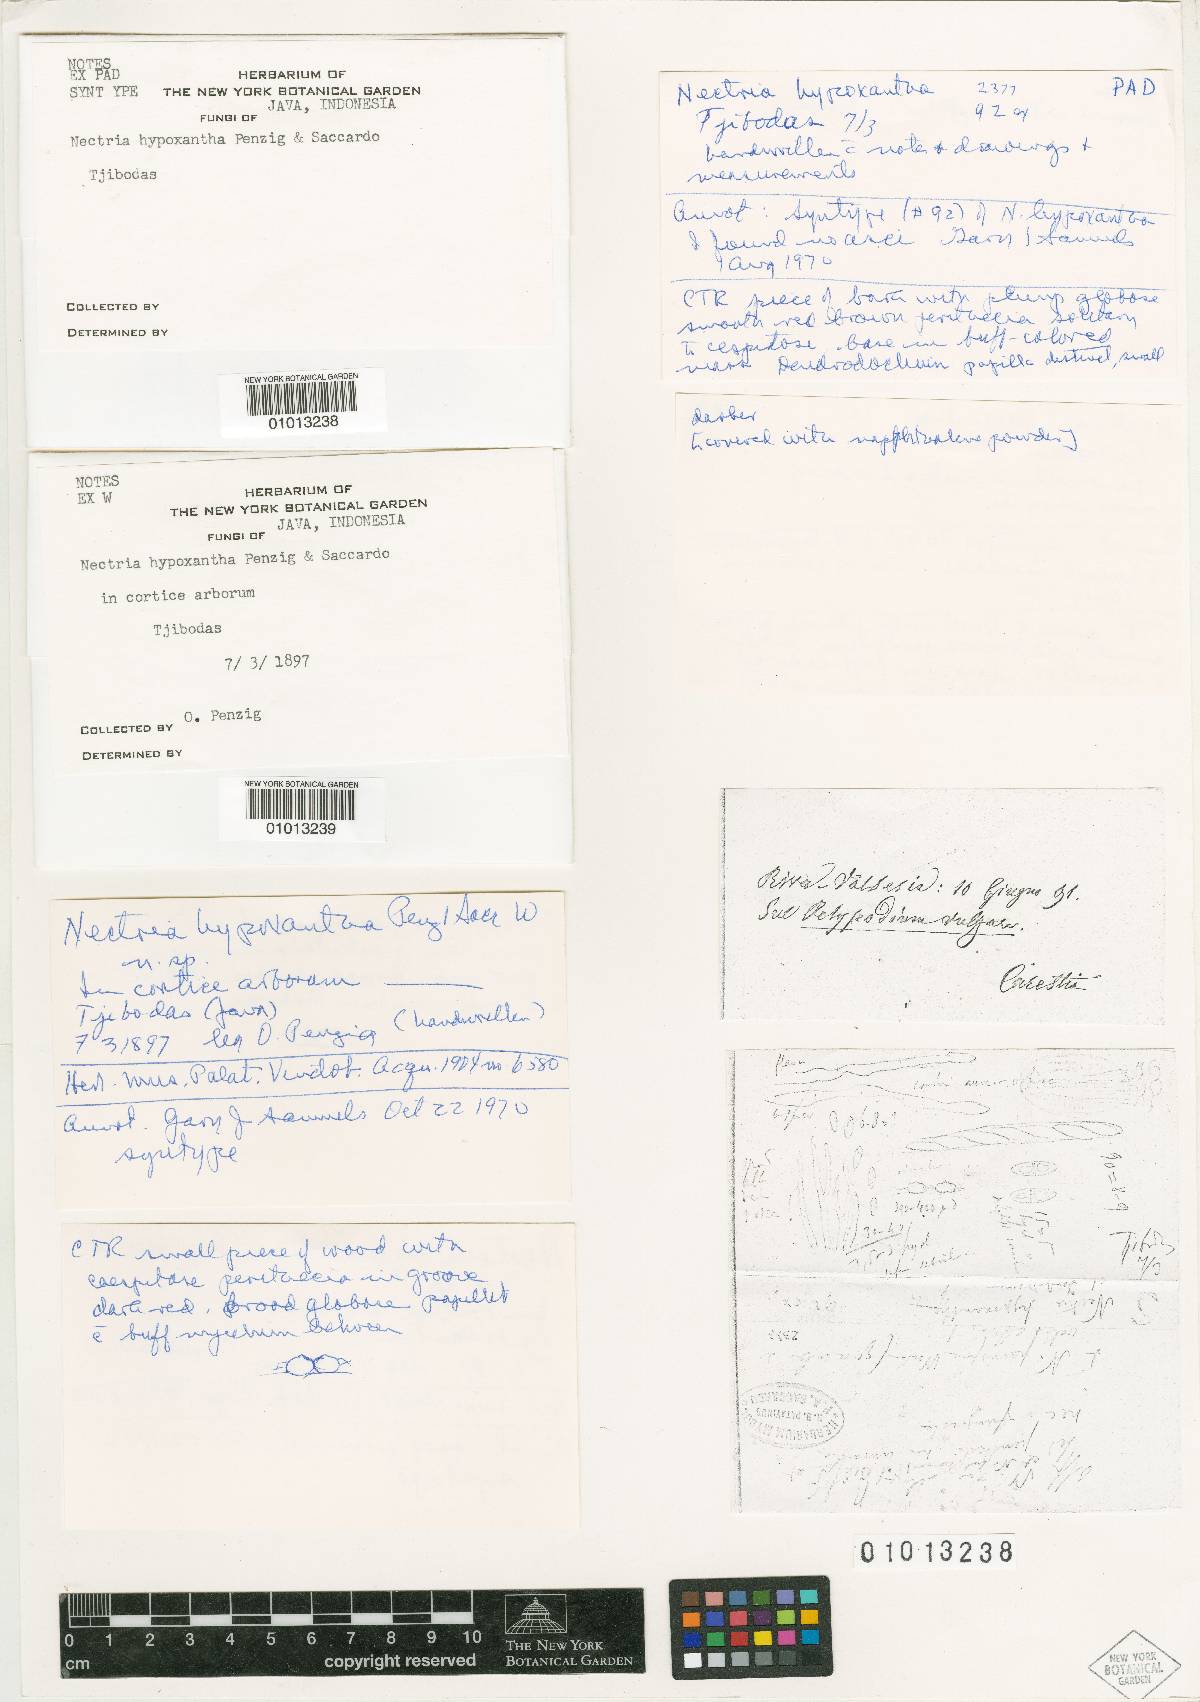 NOTES
EX PAD
SYNT YPE
HERBARIUM OF
THE NEW YORK BOTANICAL GARDEN
JAVA, INDONESIA
FUNGI OF
Nectria hypoxantha Penzig & Saccardo
Tjibodas
COLLECTED BY
DETERMINED BY
NEW YORK BOTANICAL GARDEN
01013238
NOTES
EX W
HERBARIUM OF
THE NEW YORK BOTANICAL GARDEN
JAVA, INDONESIA
FUNGI OF
Nectria hypoxantha Penzig & Saccardo
in cortice arborum
Tjibodas
7/ 3/ 1897
COLLECTED BY O. Penzig
DETERMINED BY
NEW YORK BOTANICAL GARDEN
01013239
Nectria hypoxantha Penz & Sacc W
n. sp.
In cortice arborum
Tjibodas (Java)
7 3 1897 leg O. Penzig (handwritten)
Herb. Mus. Palat. Vindob. Acqu. 1904 no 6580
Annot. Gary J Samuels Oct 22 1970
syntype
CTR small piece of wood with
caespitose perithecia in groove
dark red, broad globose papillet
c̄ buff mycelium between
Nectria hypoxantha 2377 PAD
Tjibodas 7/3 92
handwritten c̄ notes & drawings &
measurements
Annot: Syntype (# 92) of N. hypoxantha
I found no asci Gary J Samuels
Aug 1970
CTR piece of bark with plump globose
smooth red brown perithecia solitary
to cespitose, base in buff-colored
mass Dendrodochium papilla distinct, small
darker
[covered with naphthalene powder]
Riva-Valsesia: 10 Giugno 91.
Sul Polypodium vulgare.
Carestia
01013238
0 1 2 3 4 5 6 7 8 9 10
cm
copyright reserved
THE NEW YORK
BOTANICAL GARDEN
NEW YORK
BOTANICAL
GARDEN